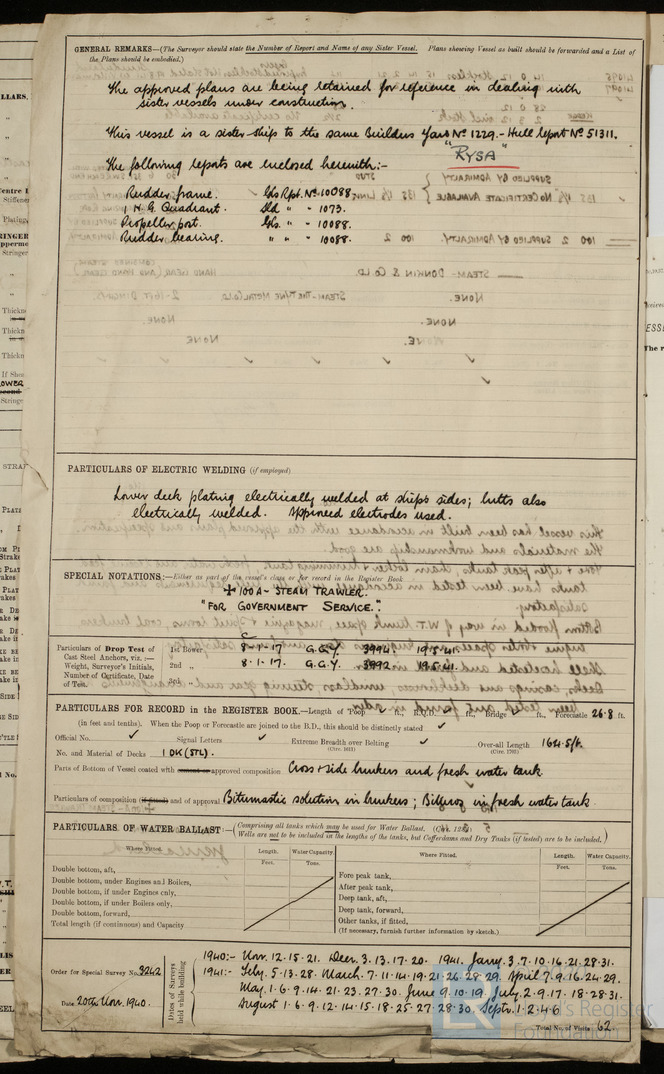 GENERAL REMARKS—(The Surveyor should state the Number of Report and Name of any Sister Vessel. Plans showing Vessel as built should be forwarded and a List of
the Plans should be embodied.)
The approved plans are being retained for reference in dealing with
sister vessels under construction.
This vessel is a sister ship to the same Builders Yard No 1229. - Hull Report No 51311.
"RYSA"
The following reports are enclosed herewith:-
Rudder frame. Gls Rpt. No. 10088.
1 H.G. Quadrant. Sld " " 1073.
Propeller post. Gls. " " 10088.
Rudder bearing. " " " 10088.
PARTICULARS OF ELECTRIC WELDING (if employed)
Lower deck plating electrically welded at ship's sides; butts also
electrically welded. Approved electrodes used.
SPECIAL NOTATIONS:—Either as part of the vessel's class or for record in the Register Book
✠ 100A - STEAM TRAWLER.
"FOR GOVERNMENT SERVICE".
Particulars of Drop Test of
Cast Steel Anchors, viz.:—
Weight, Surveyor's Initials,
Number of Certificate, Date
of Test.
1st Bower 8.1.17 G.G.Y. 3994 19.5.41.
2nd " 8.1.17 G.G.Y. 3992 19.5.41.
3rd "
PARTICULARS FOR RECORD in the REGISTER BOOK.—Length of Poop ft., R.Q.D. ft., Bridge ft., Forecastle 26.8 ft.
(in feet and tenths). When the Poop or Forecastle are joined to the B.D., this should be distinctly stated ✓
Official No. ✓ Signal Letters ✓ Extreme Breadth over Belting ✓ Over-all Length 164.5 ft.
(Circ. 1611) (Circ. 1703)
No. and Material of Decks 1 DK (STL).
Parts of Bottom of Vessel coated with cement or approved composition Cross & side bunkers and fresh water tank.
Particulars of composition (if fitted) and of approval Bitumastic solution in bunkers; in fresh water tank.
PARTICULARS OF WATER BALLAST:—(Comprising all tanks which may be used for Water Ballast,
Wells are not to be included in the lengths of the tanks, but Cofferdams and Dry Tanks (if tested) are to be included.)
Where Fitted. Length. Water Capacity. Where Fitted. Length. Water Capacity.
Feet. Tons. Feet. Tons.
Double bottom, aft,
Double bottom, under Engines and Boilers,
Double bottom, if under Engines only,
Double bottom, if under Boilers only,
Double bottom, forward,
Total length (if continuous) and Capacity
Fore peak tank,
After peak tank,
Deep tank, aft,
Deep tank, forward,
Other tanks, if fitted,
(If necessary, furnish further information by sketch.)
Order for Special Survey No. 3242
Date 20th Nov. 1940.
Dates of Surveys held while building
1940:- Nov. 12.15.21. Decr. 3.13.17.20. 1941. Jany. 3.7.10.16.21.28.31.
1941:- Feby. 5.13.28. March. 7.11.14.19.21.26.28.29. April 7.9.16.24.29.
May. 1.6.9.14.21.23.27.30. June 9.10.19. July. 2.9.17.18.28.31.
August 1.6.9.12.14.15.18.25.27.28.30. Septr. 1.2.4.6
Total No. of Visits 62.
Lloyd's Register
Foundation